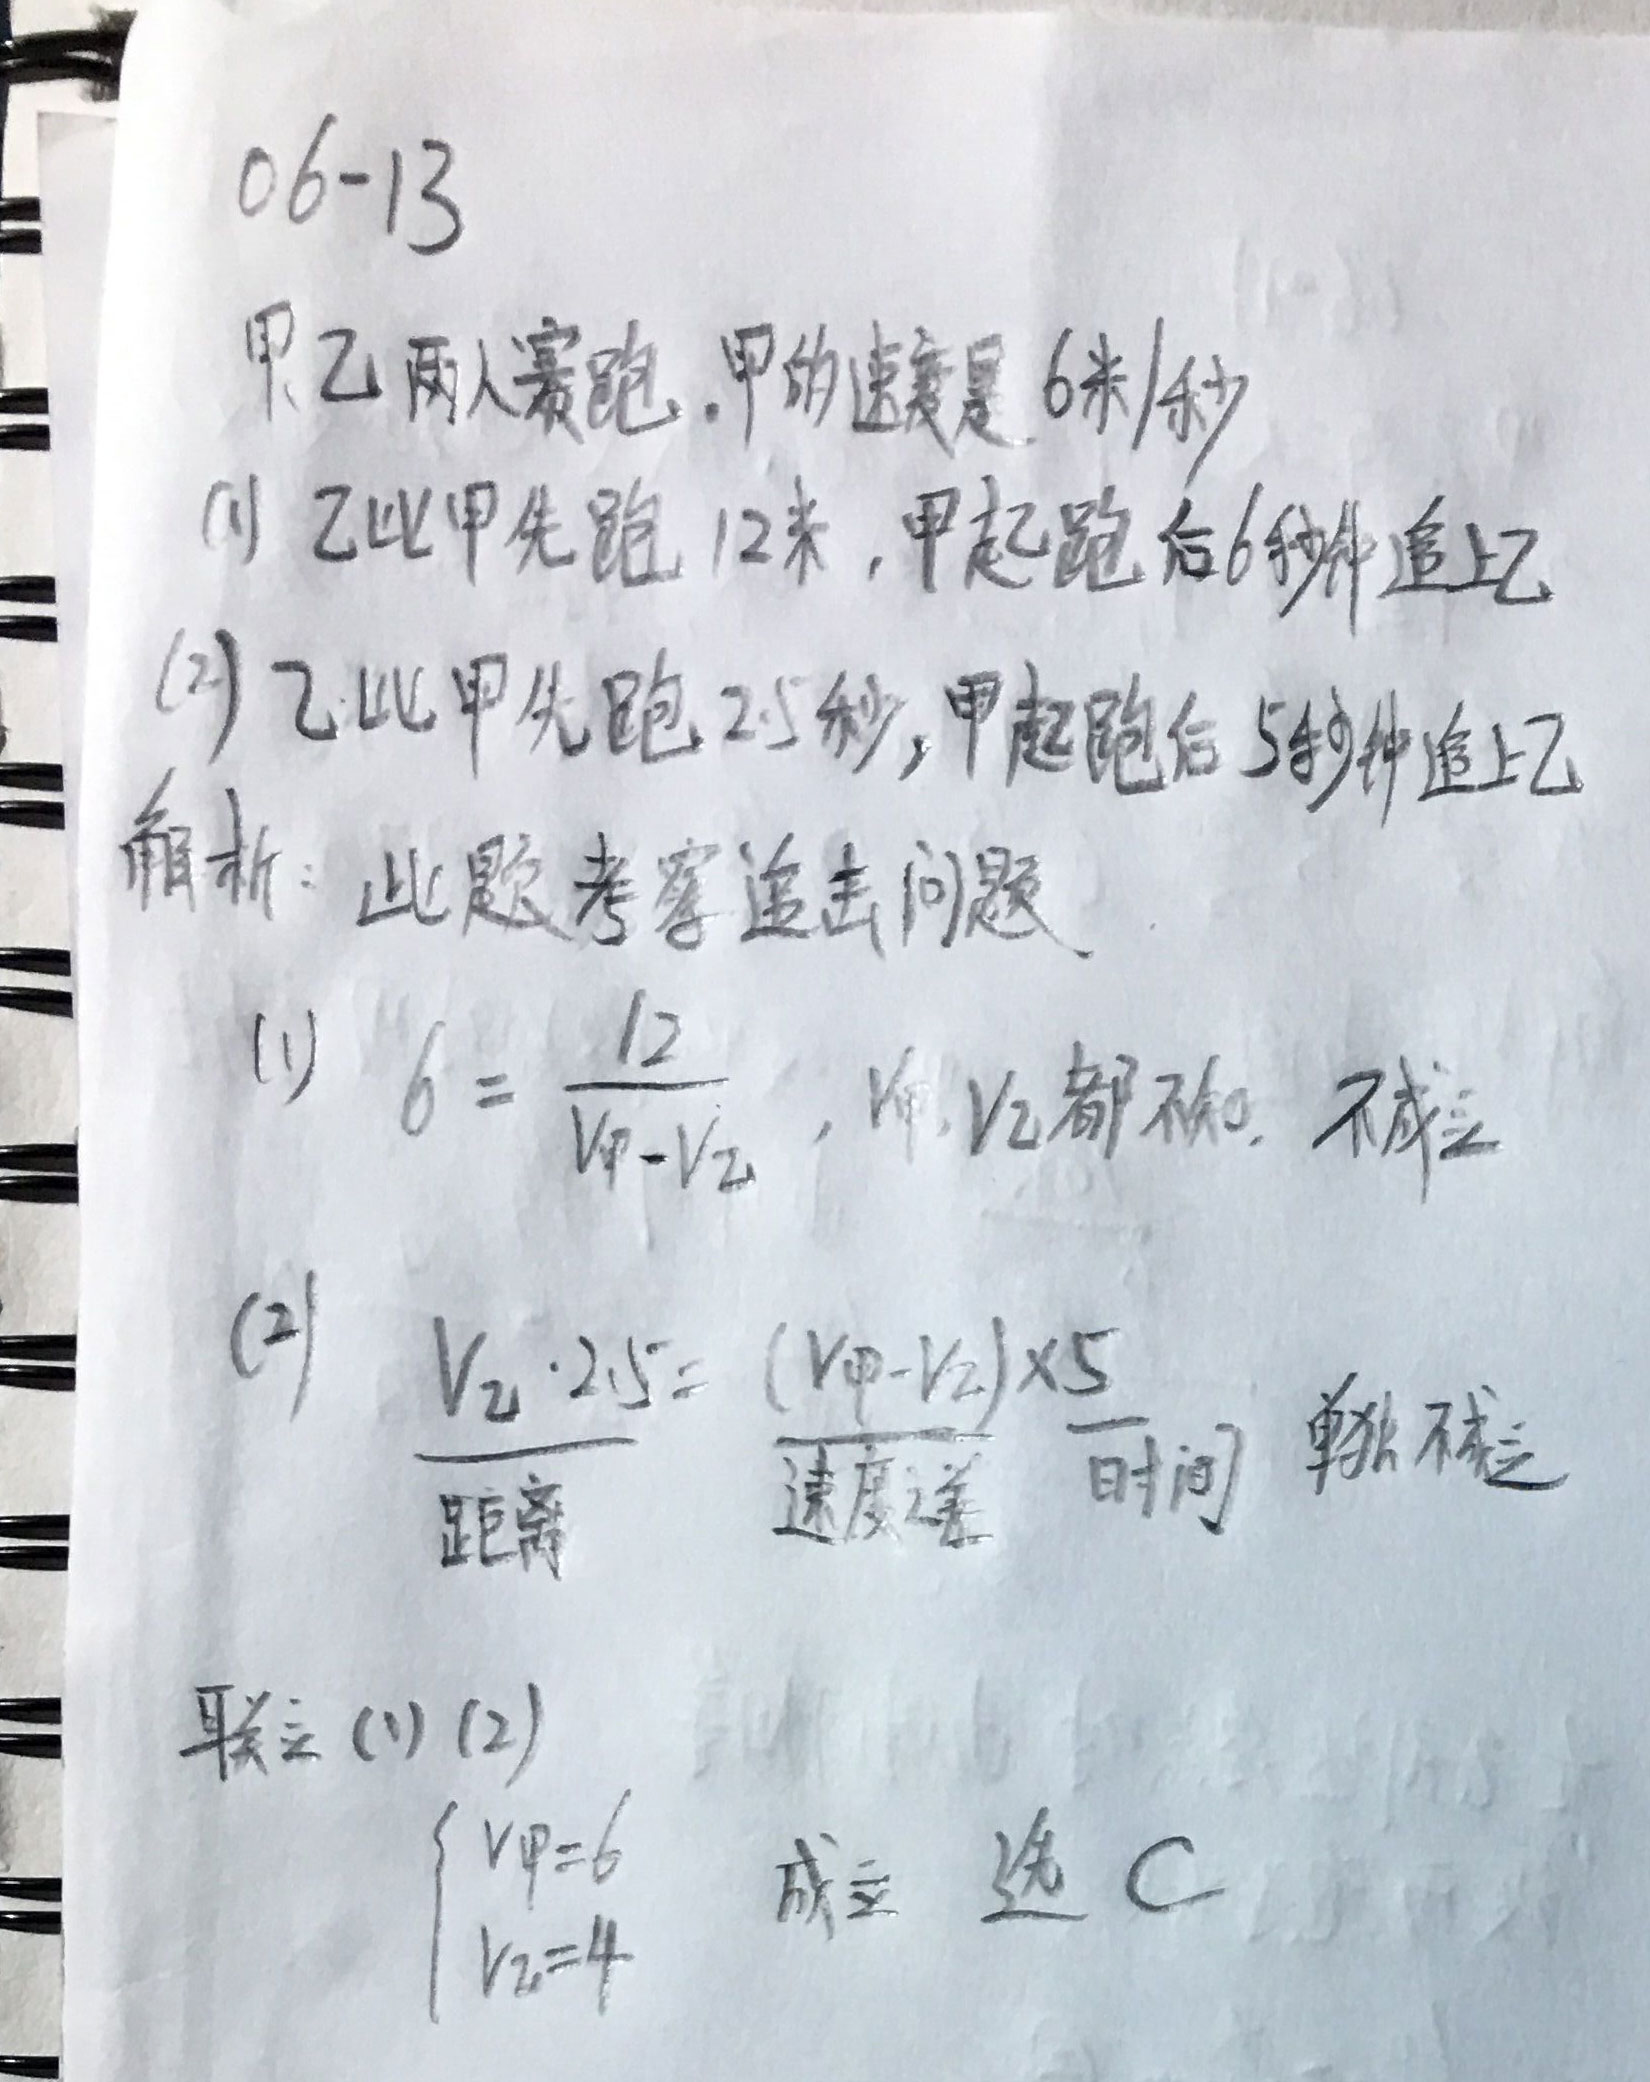 06-13
甲、乙两人赛跑，甲的速度是6米/秒
(1) 乙比甲先跑12米，甲起跑后6秒钟追上乙
(2) 乙比甲先跑2.5秒，甲起跑后5秒钟追上乙
解析：此题考察追击问题
(1) 6 = 12/(V甲-V乙)，V甲、V乙都不知. 不成立
(2) V乙·2.5 = (V甲-V乙)×5 单独不成立
距离 速度之差 时间
联立(1)(2)
{ V甲=6 成立 选 C
V乙=4